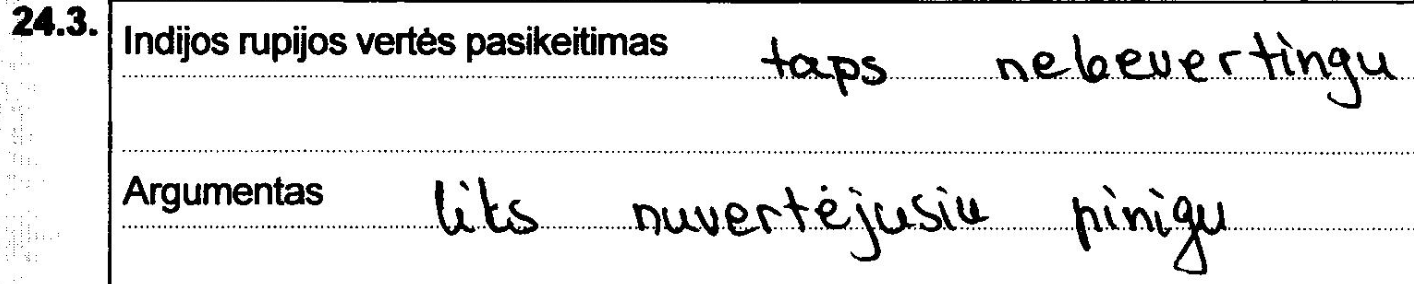 24.3. Indijos rupijos vertės pasikeitimas taps nebevertingu
Argumentas liks nuvertėjusiu pinigu